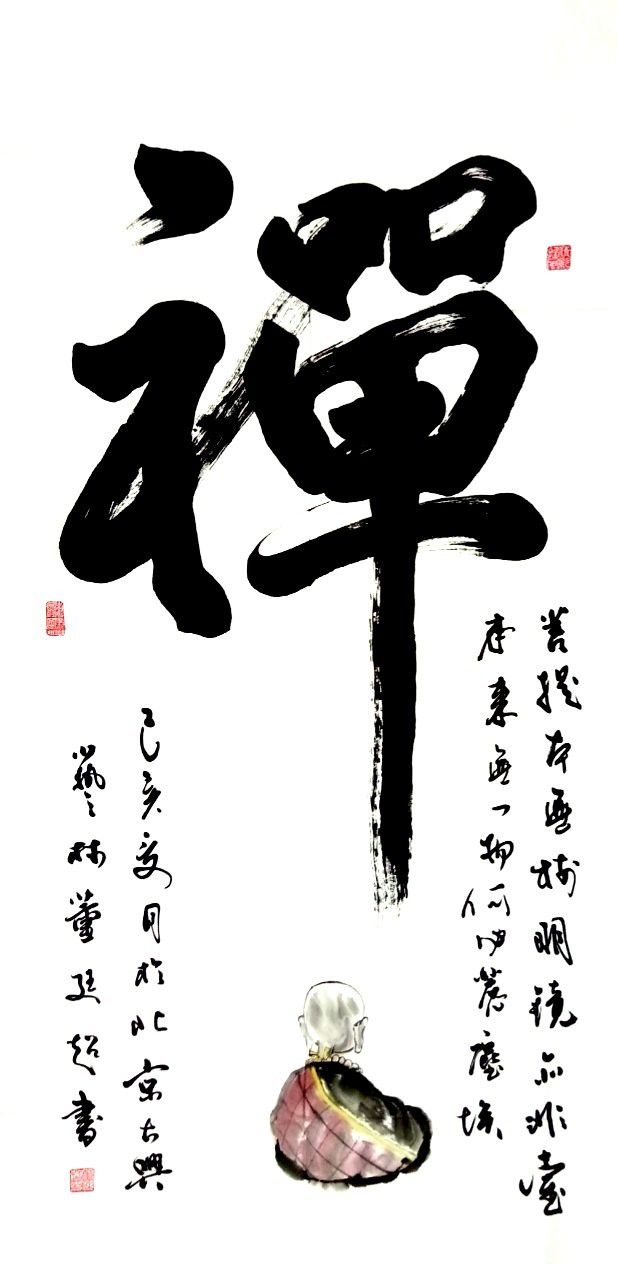 禪
菩提本無樹明鏡亦非臺
本来無一物何惹塵埃
己亥夏月於北京大興
藝林董廷超書